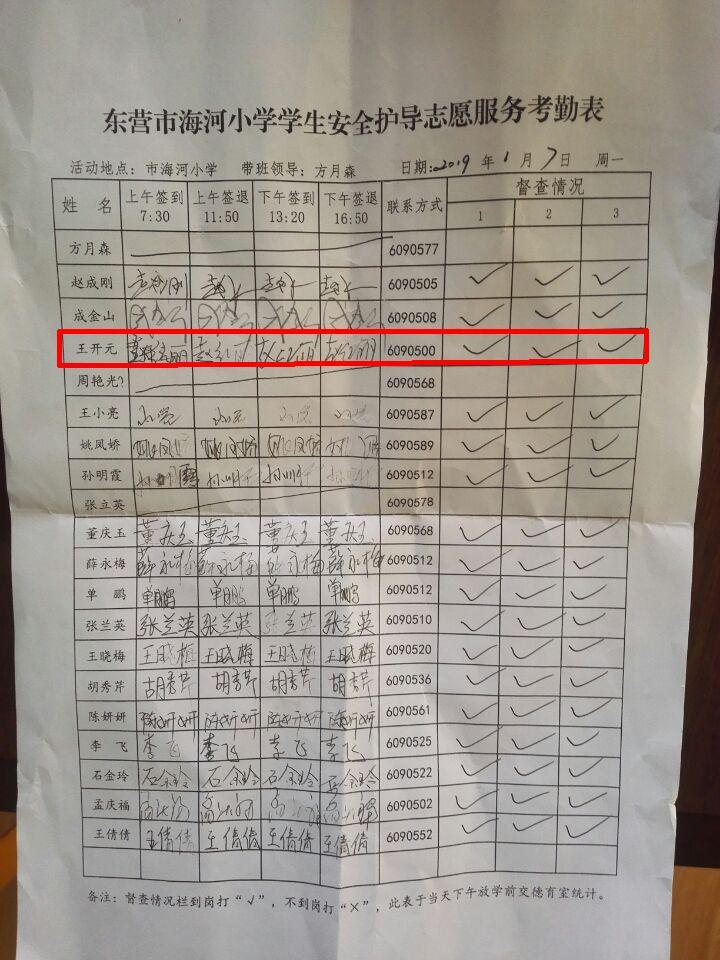 东营市海河小学学生安全护导志愿服务考勤表
活动地点：市海河小学 带班领导：方月森 日期：2019年1月7日 周一
姓 名 上午签到 7:30 上午签退 11:50 下午签到 13:20 下午签退 16:50 联系方式 督查情况 1 2 3
方月森 6090577
赵成刚 6090505 ✓ ✓ ✓
成金山 6090508 ✓ ✓ ✓
王开元 6090500 ✓ ✓ ✓
周艳光? 6090568
王小亮 小亮 小亮 小亮 小亮 6090587 ✓ ✓ ✓
姚凤娇 姚凤娇 姚凤娇 姚凤娇 6090589 ✓ ✓ ✓
孙明霞 孙明霞 6090512 ✓ ✓ ✓
张立英 6090578
董庆玉 董庆玉 董庆玉 董庆玉 董庆玉 6090568 ✓ ✓ ✓
薛永梅 薛永梅 薛永梅 薛永梅 薛永梅 6090512 ✓ ✓ ✓
单 鹏 单鹏 单鹏 单鹏 单鹏 6090512 ✓ ✓ ✓
张兰英 张兰英 张兰英 张兰英 张兰英 6090510 ✓ ✓ ✓
王晓梅 王晓梅 王晓梅 王晓梅 王晓梅 6090520 ✓ ✓ ✓
胡秀芹 胡秀芹 胡秀芹 胡秀芹 胡秀芹 6090536 ✓ ✓ ✓
陈妍妍 陈妍妍 陈妍妍 陈妍妍 陈妍妍 6090561 ✓ ✓ ✓
李 飞 李飞 李飞 李飞 李飞 6090525 ✓ ✓ ✓
石金玲 石金玲 石金玲 石金玲 石金玲 6090522 ✓ ✓ ✓
孟庆福 6090502 ✓ ✓ ✓
王倩倩 王倩倩 王倩倩 王倩倩 王倩倩 6090552 ✓ ✓ ✓
备注：督查情况栏到岗打“√”，不到岗打“×”，此表于当天下午放学前交德育室统计。